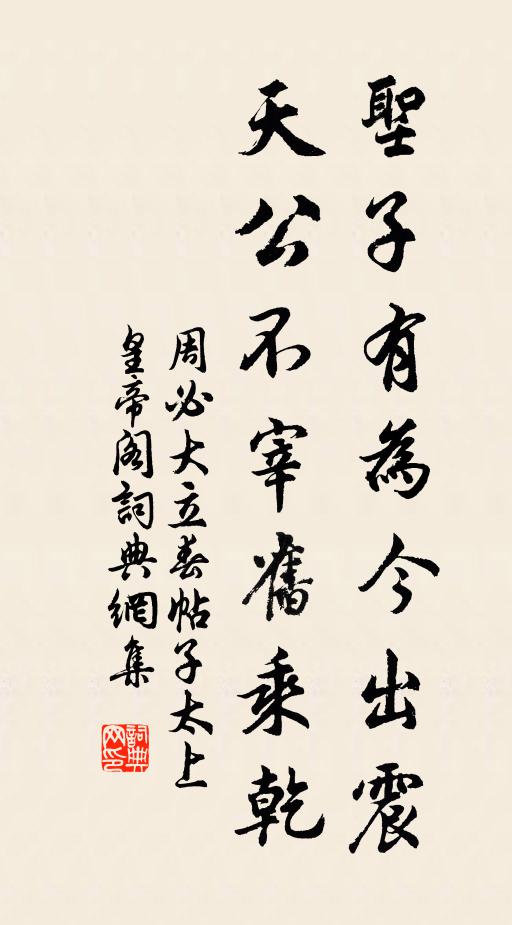 聖子有為今出震
天公不宰舊乘乾
周必大立春帖子太上
皇帝閣詞典網集
詞典
网印